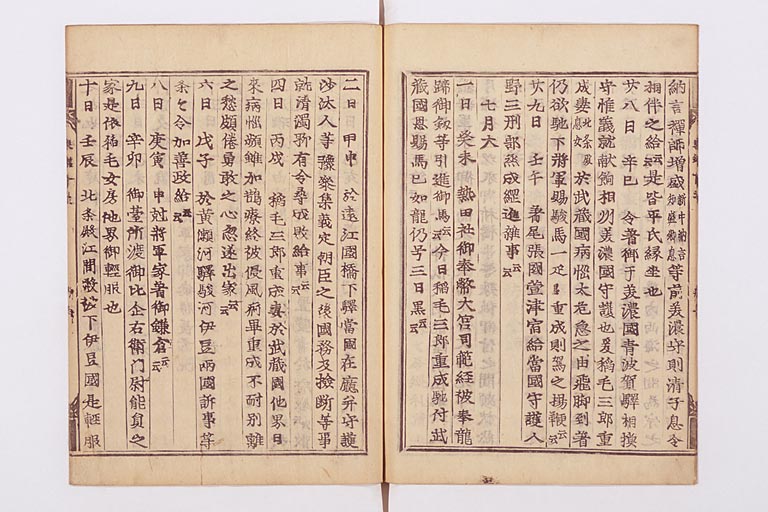 納言禪師増盛新中納言知盛卿息等前美濃守則清子息令
相伴之給云云是皆平氏縁坐也
廿八日 辛巳 令著御于美濃國青波賀驛相模
守惟義就献駒相州美濃國守護也爰稲毛三郎重
成妻北条殿息女於武蔵國病悩太危急之由飛脚到著
仍欲馳下將軍賜駿馬一疋重成則駕之揚鞭云云
廿九日 壬午 著尾張國萱津宿給當國守護人
野三刑部丞成綱進雜事云云
七月大
一日 癸未 熱田社御奉幣大宮司範經被奉龍
蹄御劔等引進御馬云云今日稲毛三郎重成馳付武
蔵國恩賜馬已如龍仍号三日黒云云
二日 甲申 於遠江國橋下驛當國在廳并守護
沙汰人等豫參集義定朝臣之後國務及撿断等事
就清濁聊有令尋成敗給事云云
四日 丙戌 稲毛三郎重成妻於武蔵國他界日
來病悩頻雖加醫療終被侵風痾畢重成不耐別離
之愁頗倦勇敢之心忽遂出家云云
六日 戊子 於黄瀬河驛駿河伊豆兩國訴事等
条々令加善政給云云
八日 庚寅 申尅將軍家著御鎌倉云云
九日 辛卯 御臺所渡御比企右衛門尉能員之
家是依稲毛女房他界御輕服也
十日 壬辰 北条殿江間殿下伊豆國是輕服